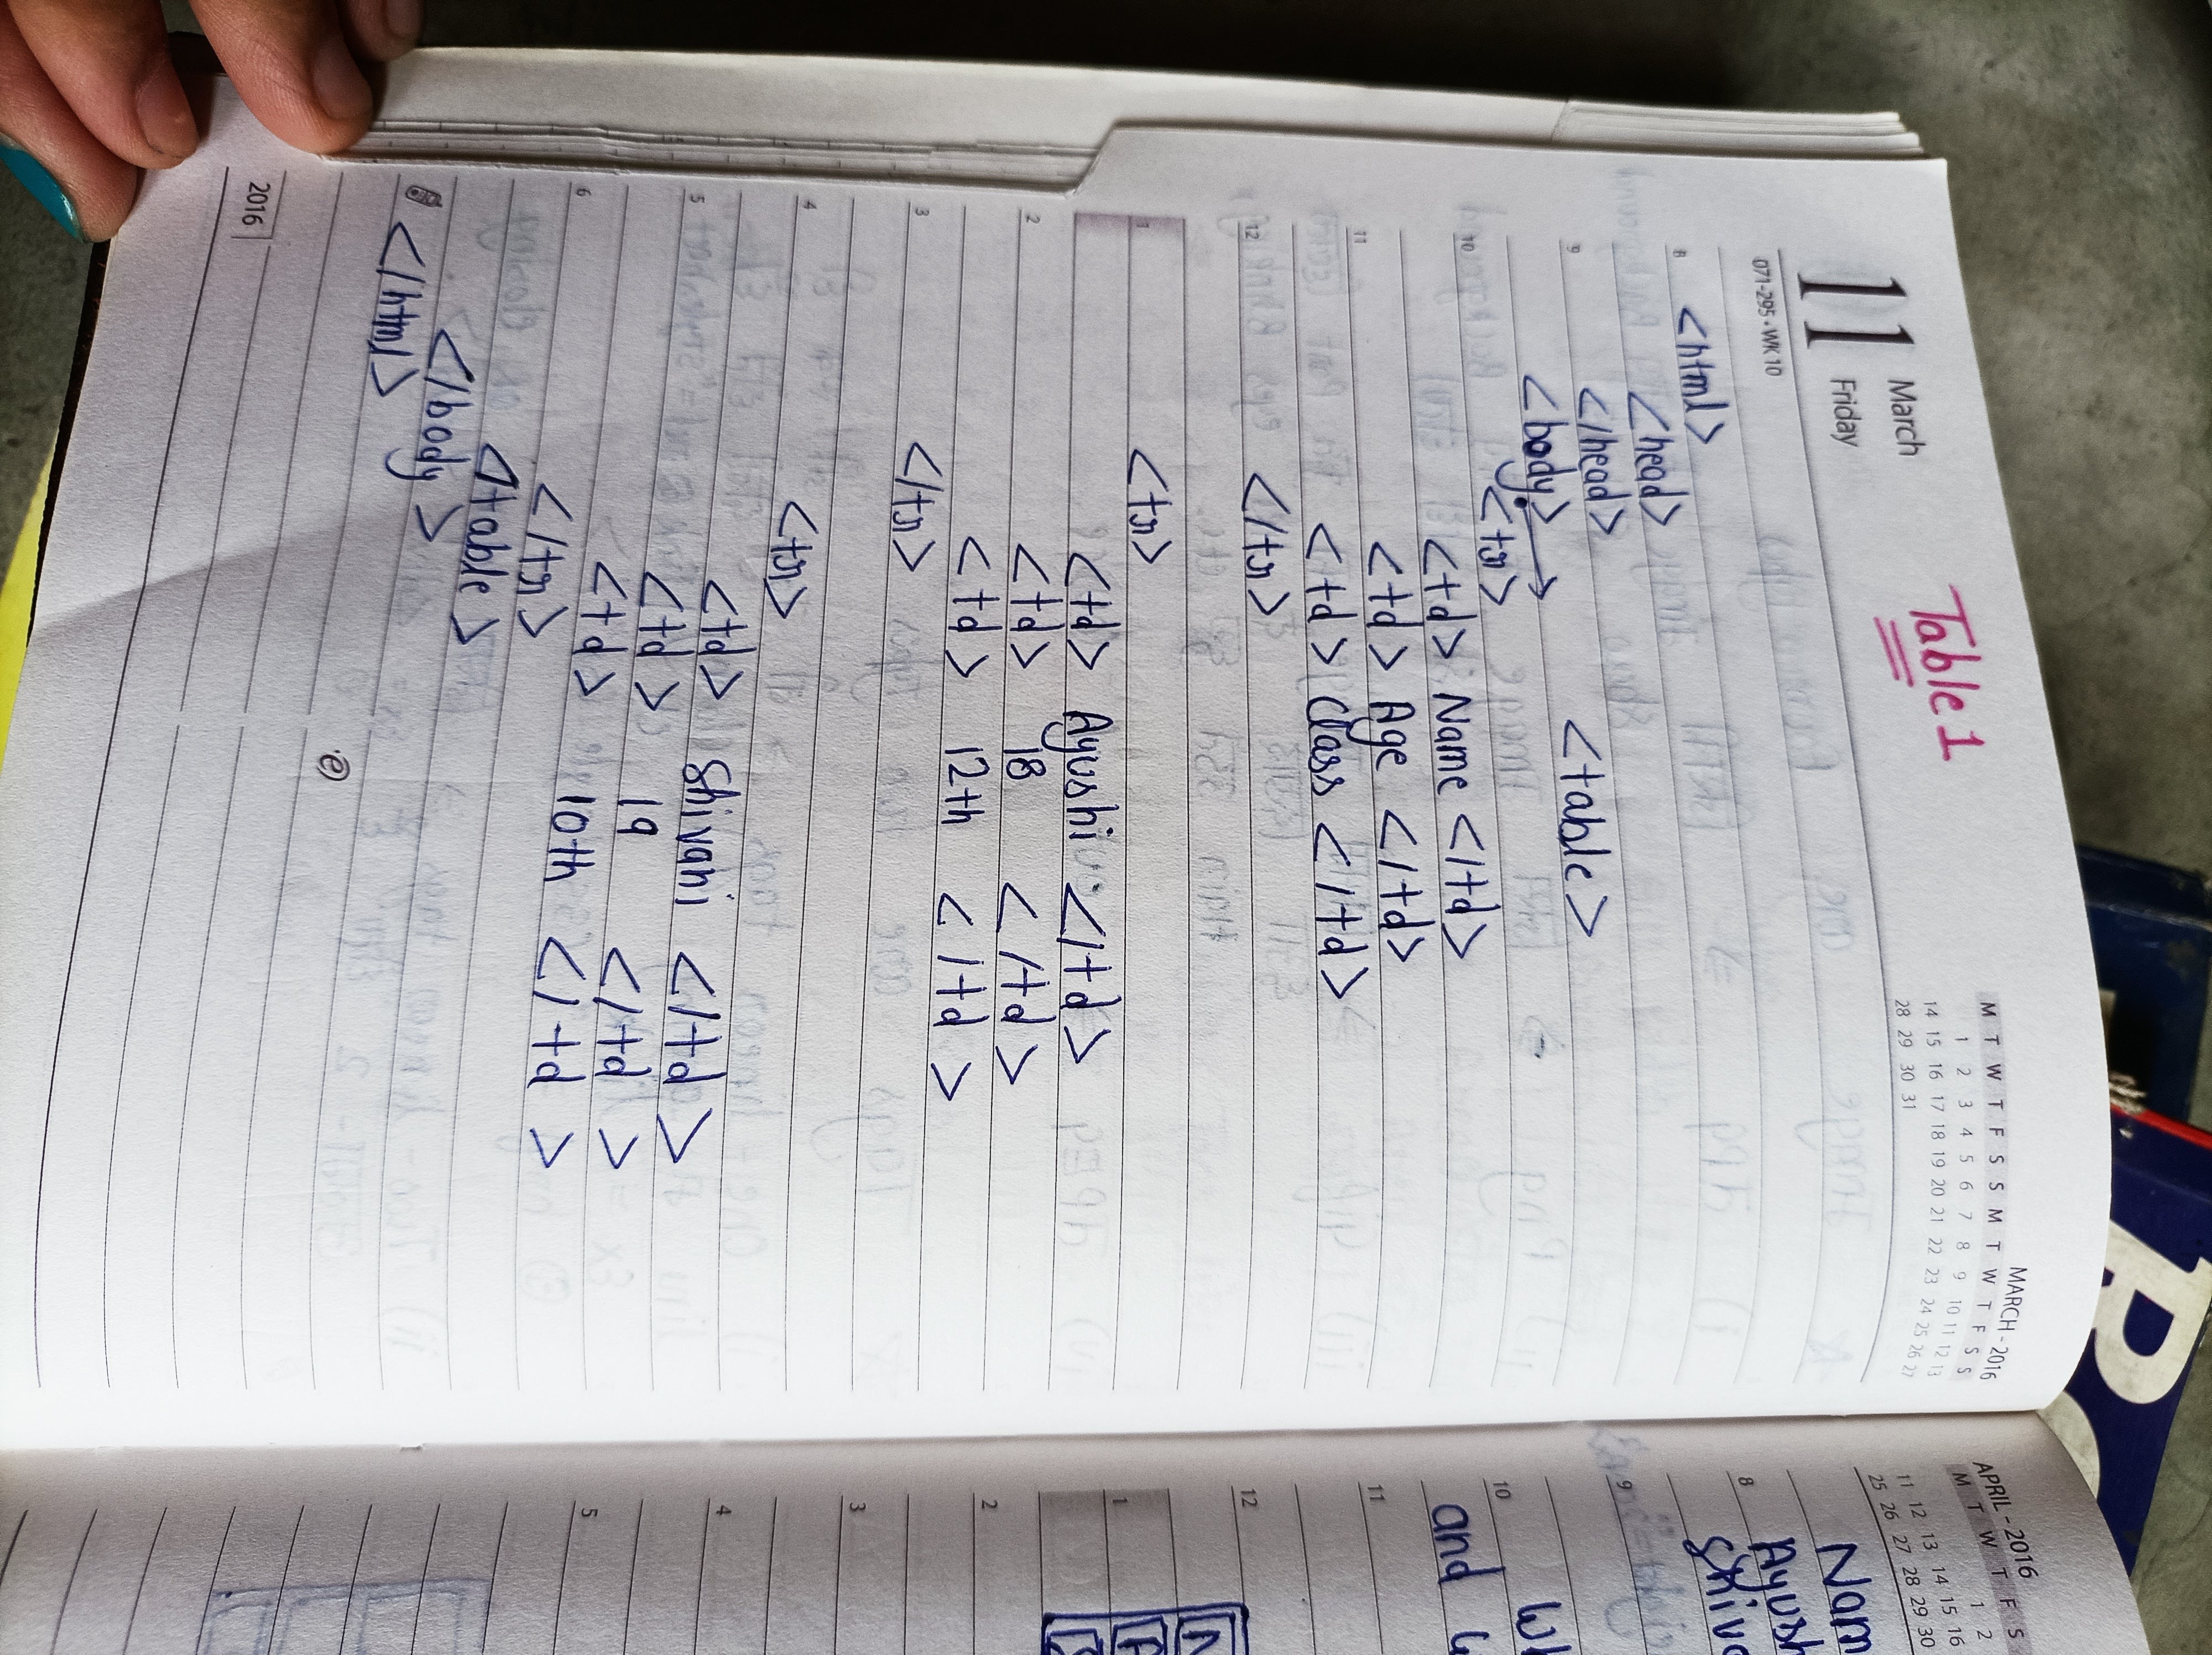 Table 1
11 March
Friday
071-295 • WK 10
MARCH - 2016
M T W T F S S M T W T F S S
1 2 3 4 5 6 7 8 9 10 11 12 13
14 15 16 17 18 19 20 21 22 23 24 25 26 27
28 29 30 31
8 <html>
<head>
9 </head> <table>
<body>
10 <tr>
<td> Name </td>
11 <td> Age </td>
<td> Class </td>
12 </tr>
1 <tr>
<td> Ayushi </td>
2 <td> 18 </td>
<td> 12th </td>
3 </tr>
4 <tr>
5 <td> Shivani </td>
<td> 19 </td>
6 <td> 10th </td>
</tr>
</table>
</body>
</html>
2016
APRIL - 2016
M T W T F S
1 2
11 12 13 14 15 16
25 26 27 28 29 30
8
9
10
and
11
12
1
2
3
4
5